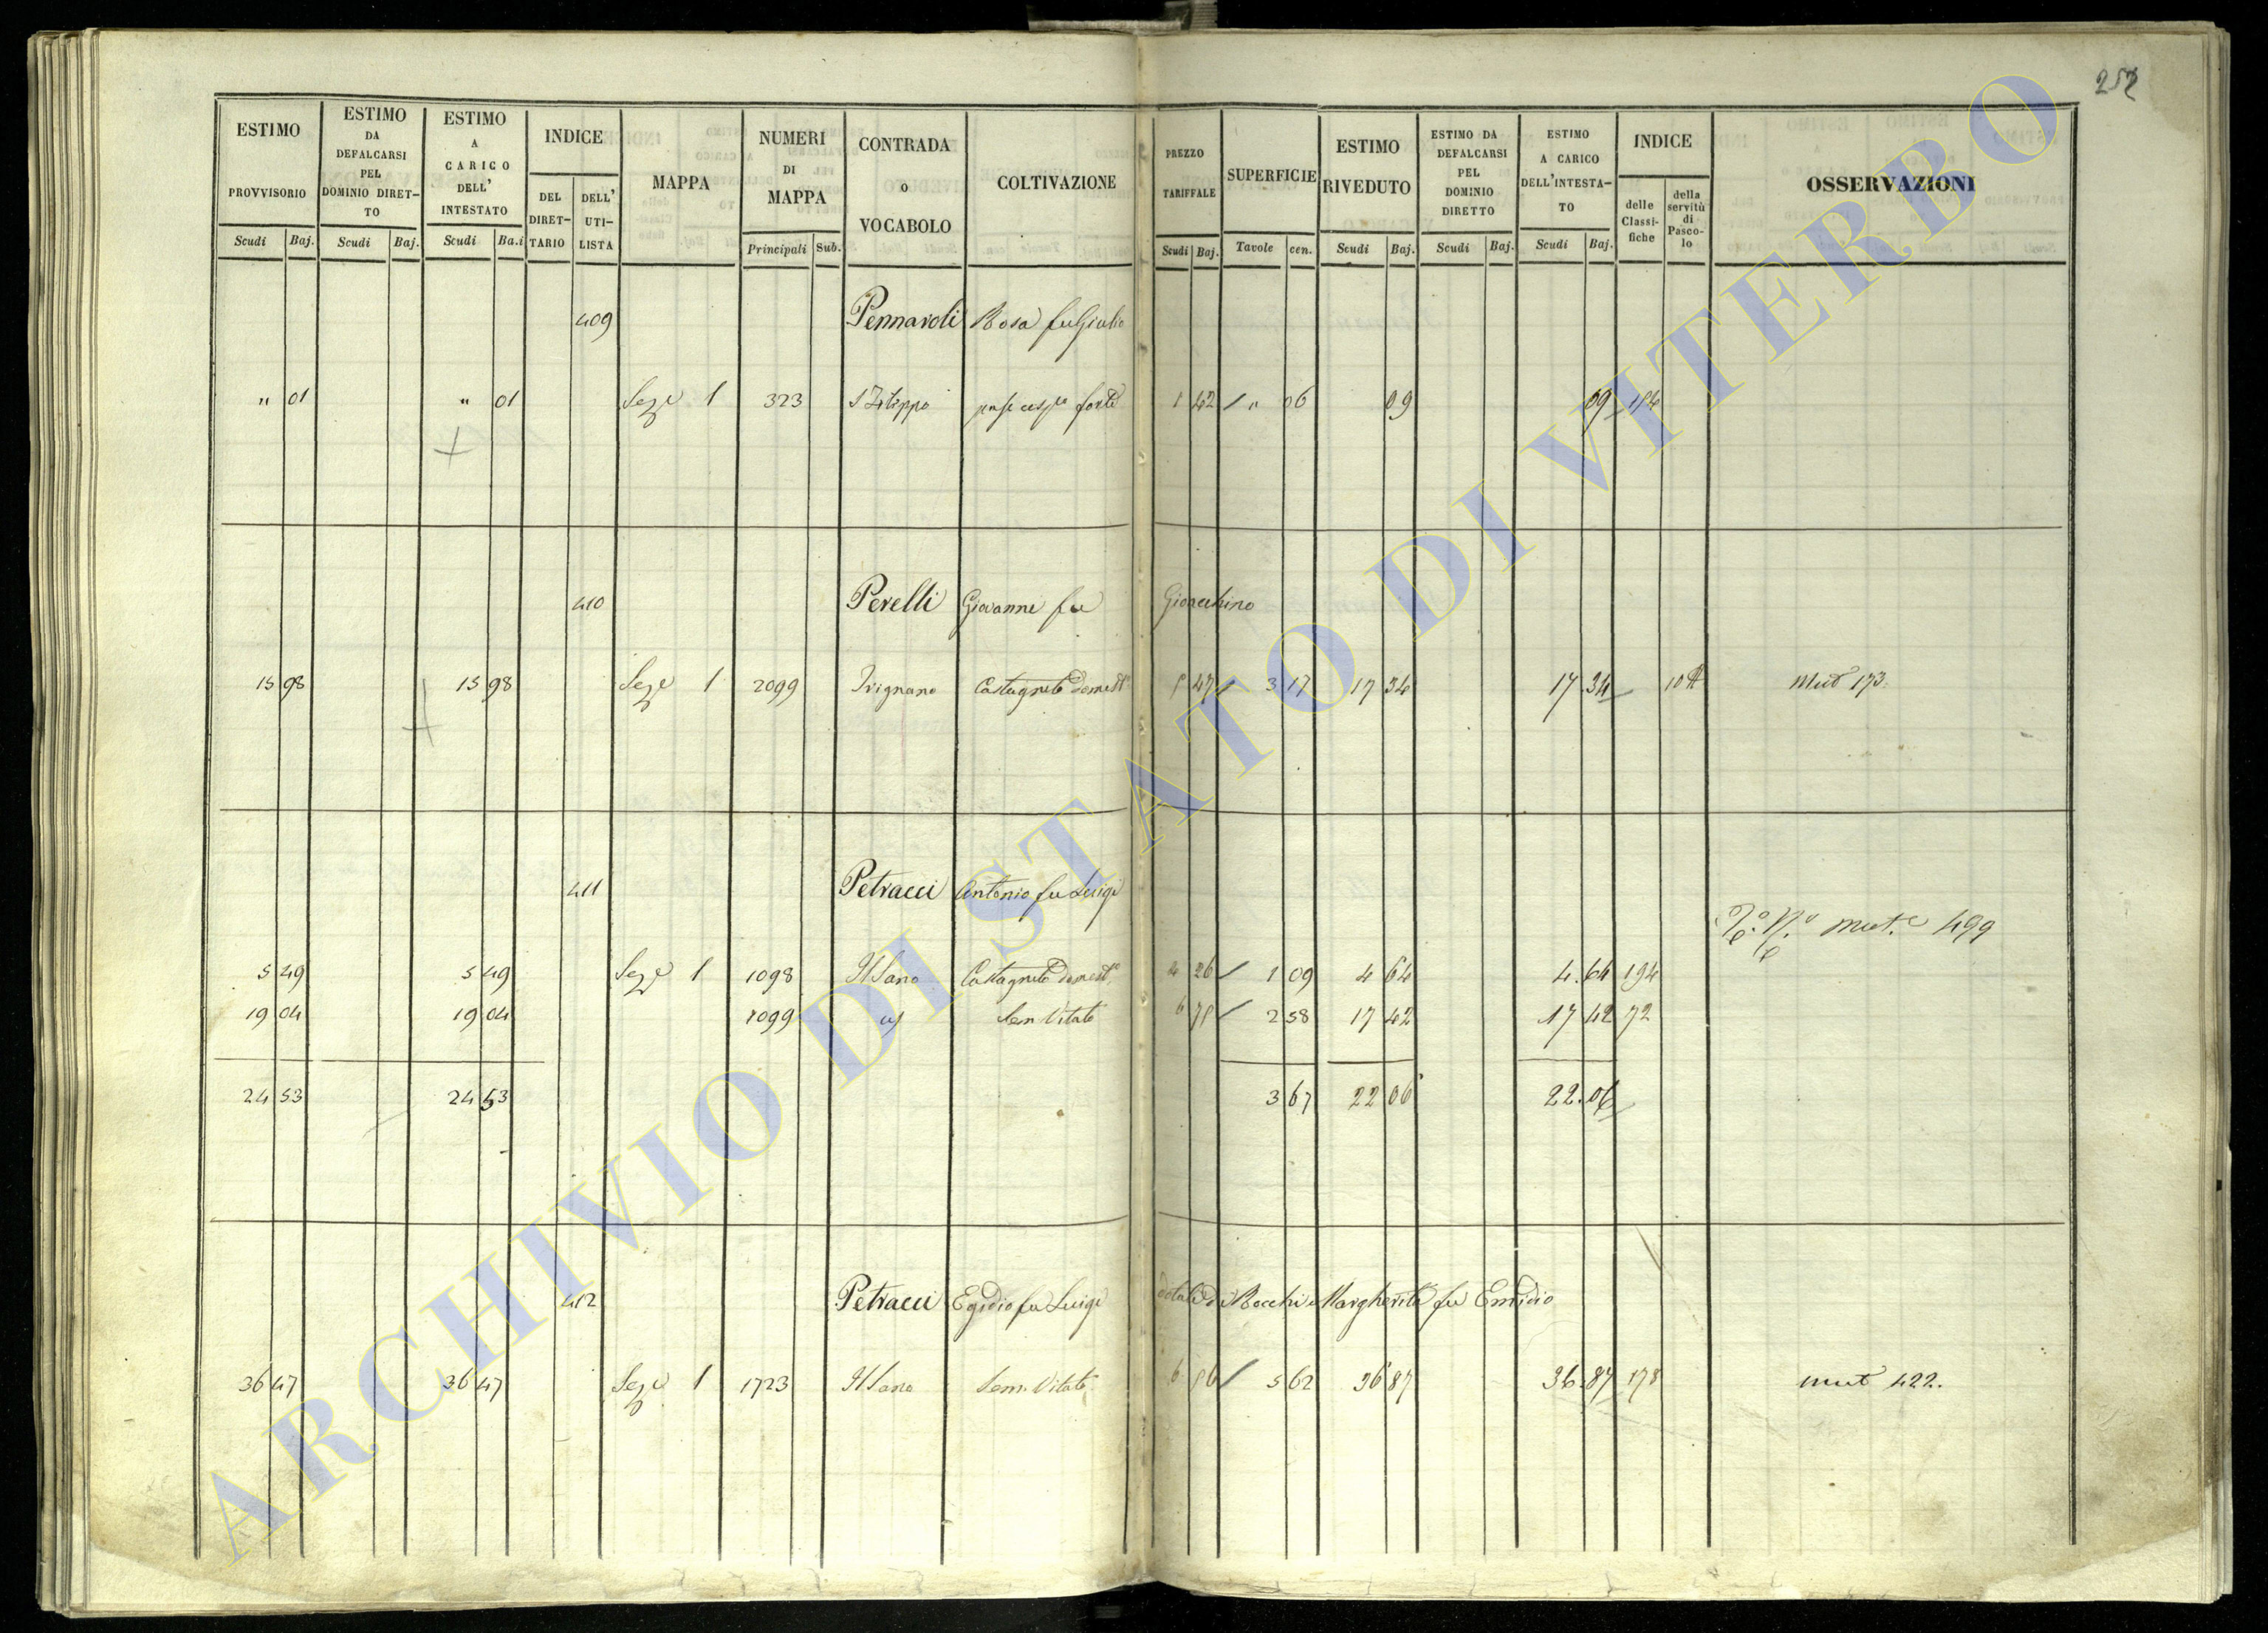 252
ESTIMO PROVVISORIO Scudi Baj.
ESTIMO DA DEFALCARSI PEL DOMINIO DIRET- TO Scudi Baj.
ESTIMO A CARICO DELL' INTESTATO Scudi Ba.i
INDICE DEL DIRET- TARIO DELL' UTI- LISTA
MAPPA
NUMERI DI MAPPA Principali Sub.
CONTRADA O VOCABOLO
COLTIVAZIONE
PREZZO TARIFFALE Scudi Baj.
SUPERFICIE Tavole cen.
ESTIMO RIVEDUTO Scudi Baj.
ESTIMO DA DEFALCARSI PEL DOMINIO DIRETTO Scudi Baj.
ESTIMO A CARICO DELL'INTESTA- TO Scudi Baj.
INDICE delle Classi- fiche della servitù di Pasco- lo
OSSERVAZIONI
409 Pennaroli Rosa fu Giulio
" 01 " 01 Seze 1 323 S Filippo forte 1 42 " 06 09 09
410 Perelli Giovanni fu Gioacchino
15 98 15 98 Seze 1 2099 Irignano Castagneto domest 47 3 17 17 34 17 34 Mut 173.
411 Petracci Antonio fu Luigi
mut.e 499
5 49 5 49 Seze 1 1098 Il Sano Castagneto domest 4 26 1 09 4 64 4.64 194
19 04 19 04 1099 Sem Vitato 6 75 2 58 17 42 17 42 72
24 53 24 53 3 67 22 06 22.06
412 Petracci Egidio fu Luigi dotale di Rocchi Margherita fu Emidio
36 47 36 47 Seze 1 1723 Il Sano Sem. Vitato 6 56 5 62 36 87 36.87 178 mut 422.
ARCHIVIO DI STATO DI VITERBO